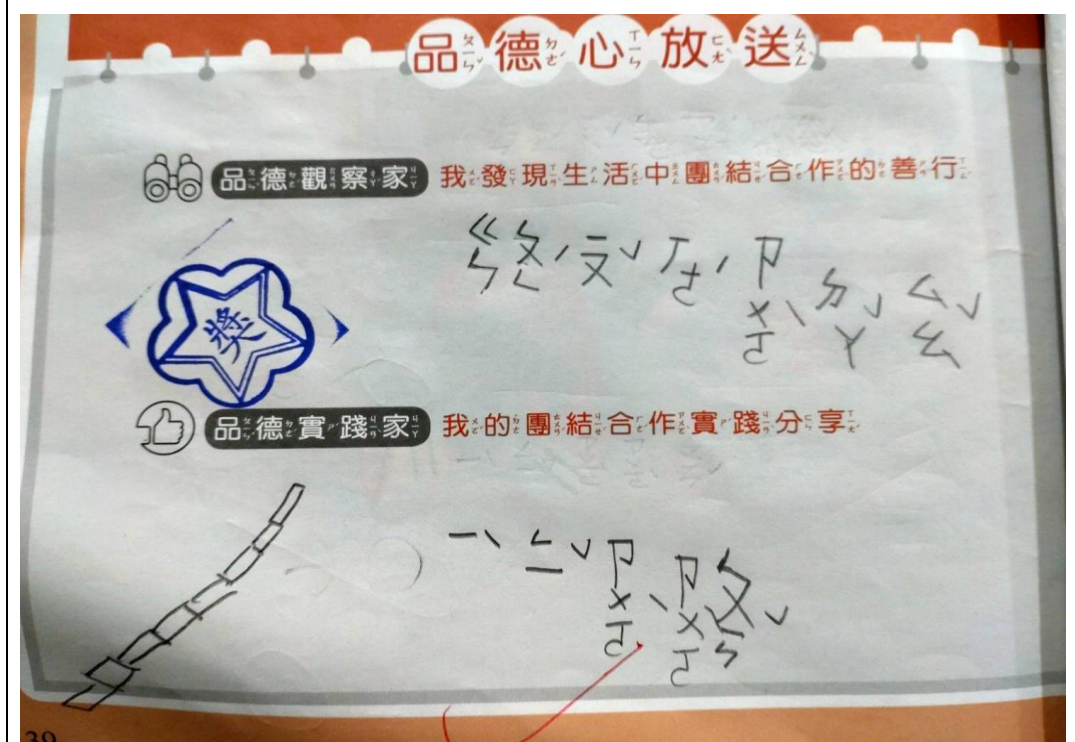 品德心放送
品德觀察家 我發現生活中團結合作的善行
ㄍㄣ ㄆㄥˊ ㄧㄡˇ ㄏㄜˊ ㄗㄨㄛˋ ㄉㄚˇ ㄙㄠˇ
獎
品德實踐家 我的團結合作實踐分享
ㄧˋ ㄑㄧˇ ㄗㄨㄛˋ
39